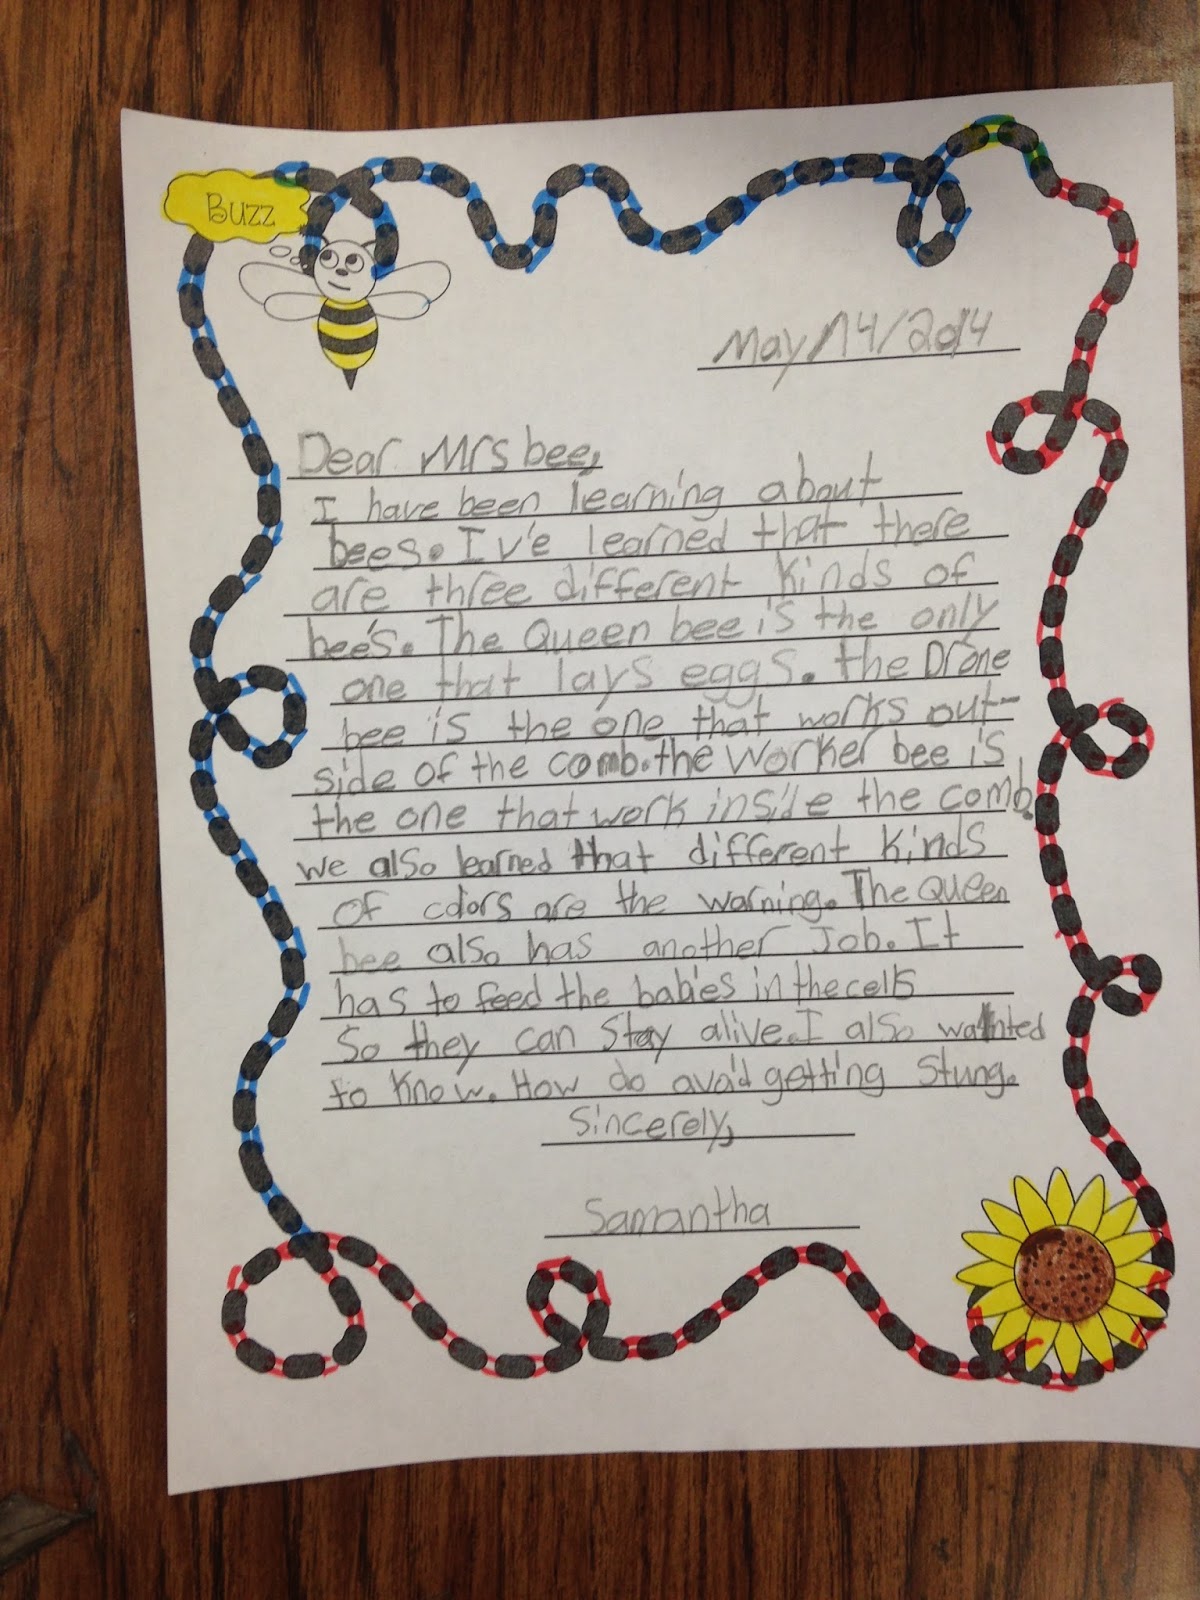 Buzz
May/14/2014
Dear Mrs bee,
I have been learning about
bees. I v'e learned that there
are three different kinds of
bee's. The Queen bee is the only
one that lays eggs. the Drone
bee is the one that works out-
side of the comb. the Worker bee is
the one that work inside the comb.
we also learned that different kinds
of colors are the warning. The Queen
bee also has another Job. It
has to feed the babies in the cells
So they can Stay alive. I also wanted
to know. How do avaid getting Stung.
Sincerely,
Samantha